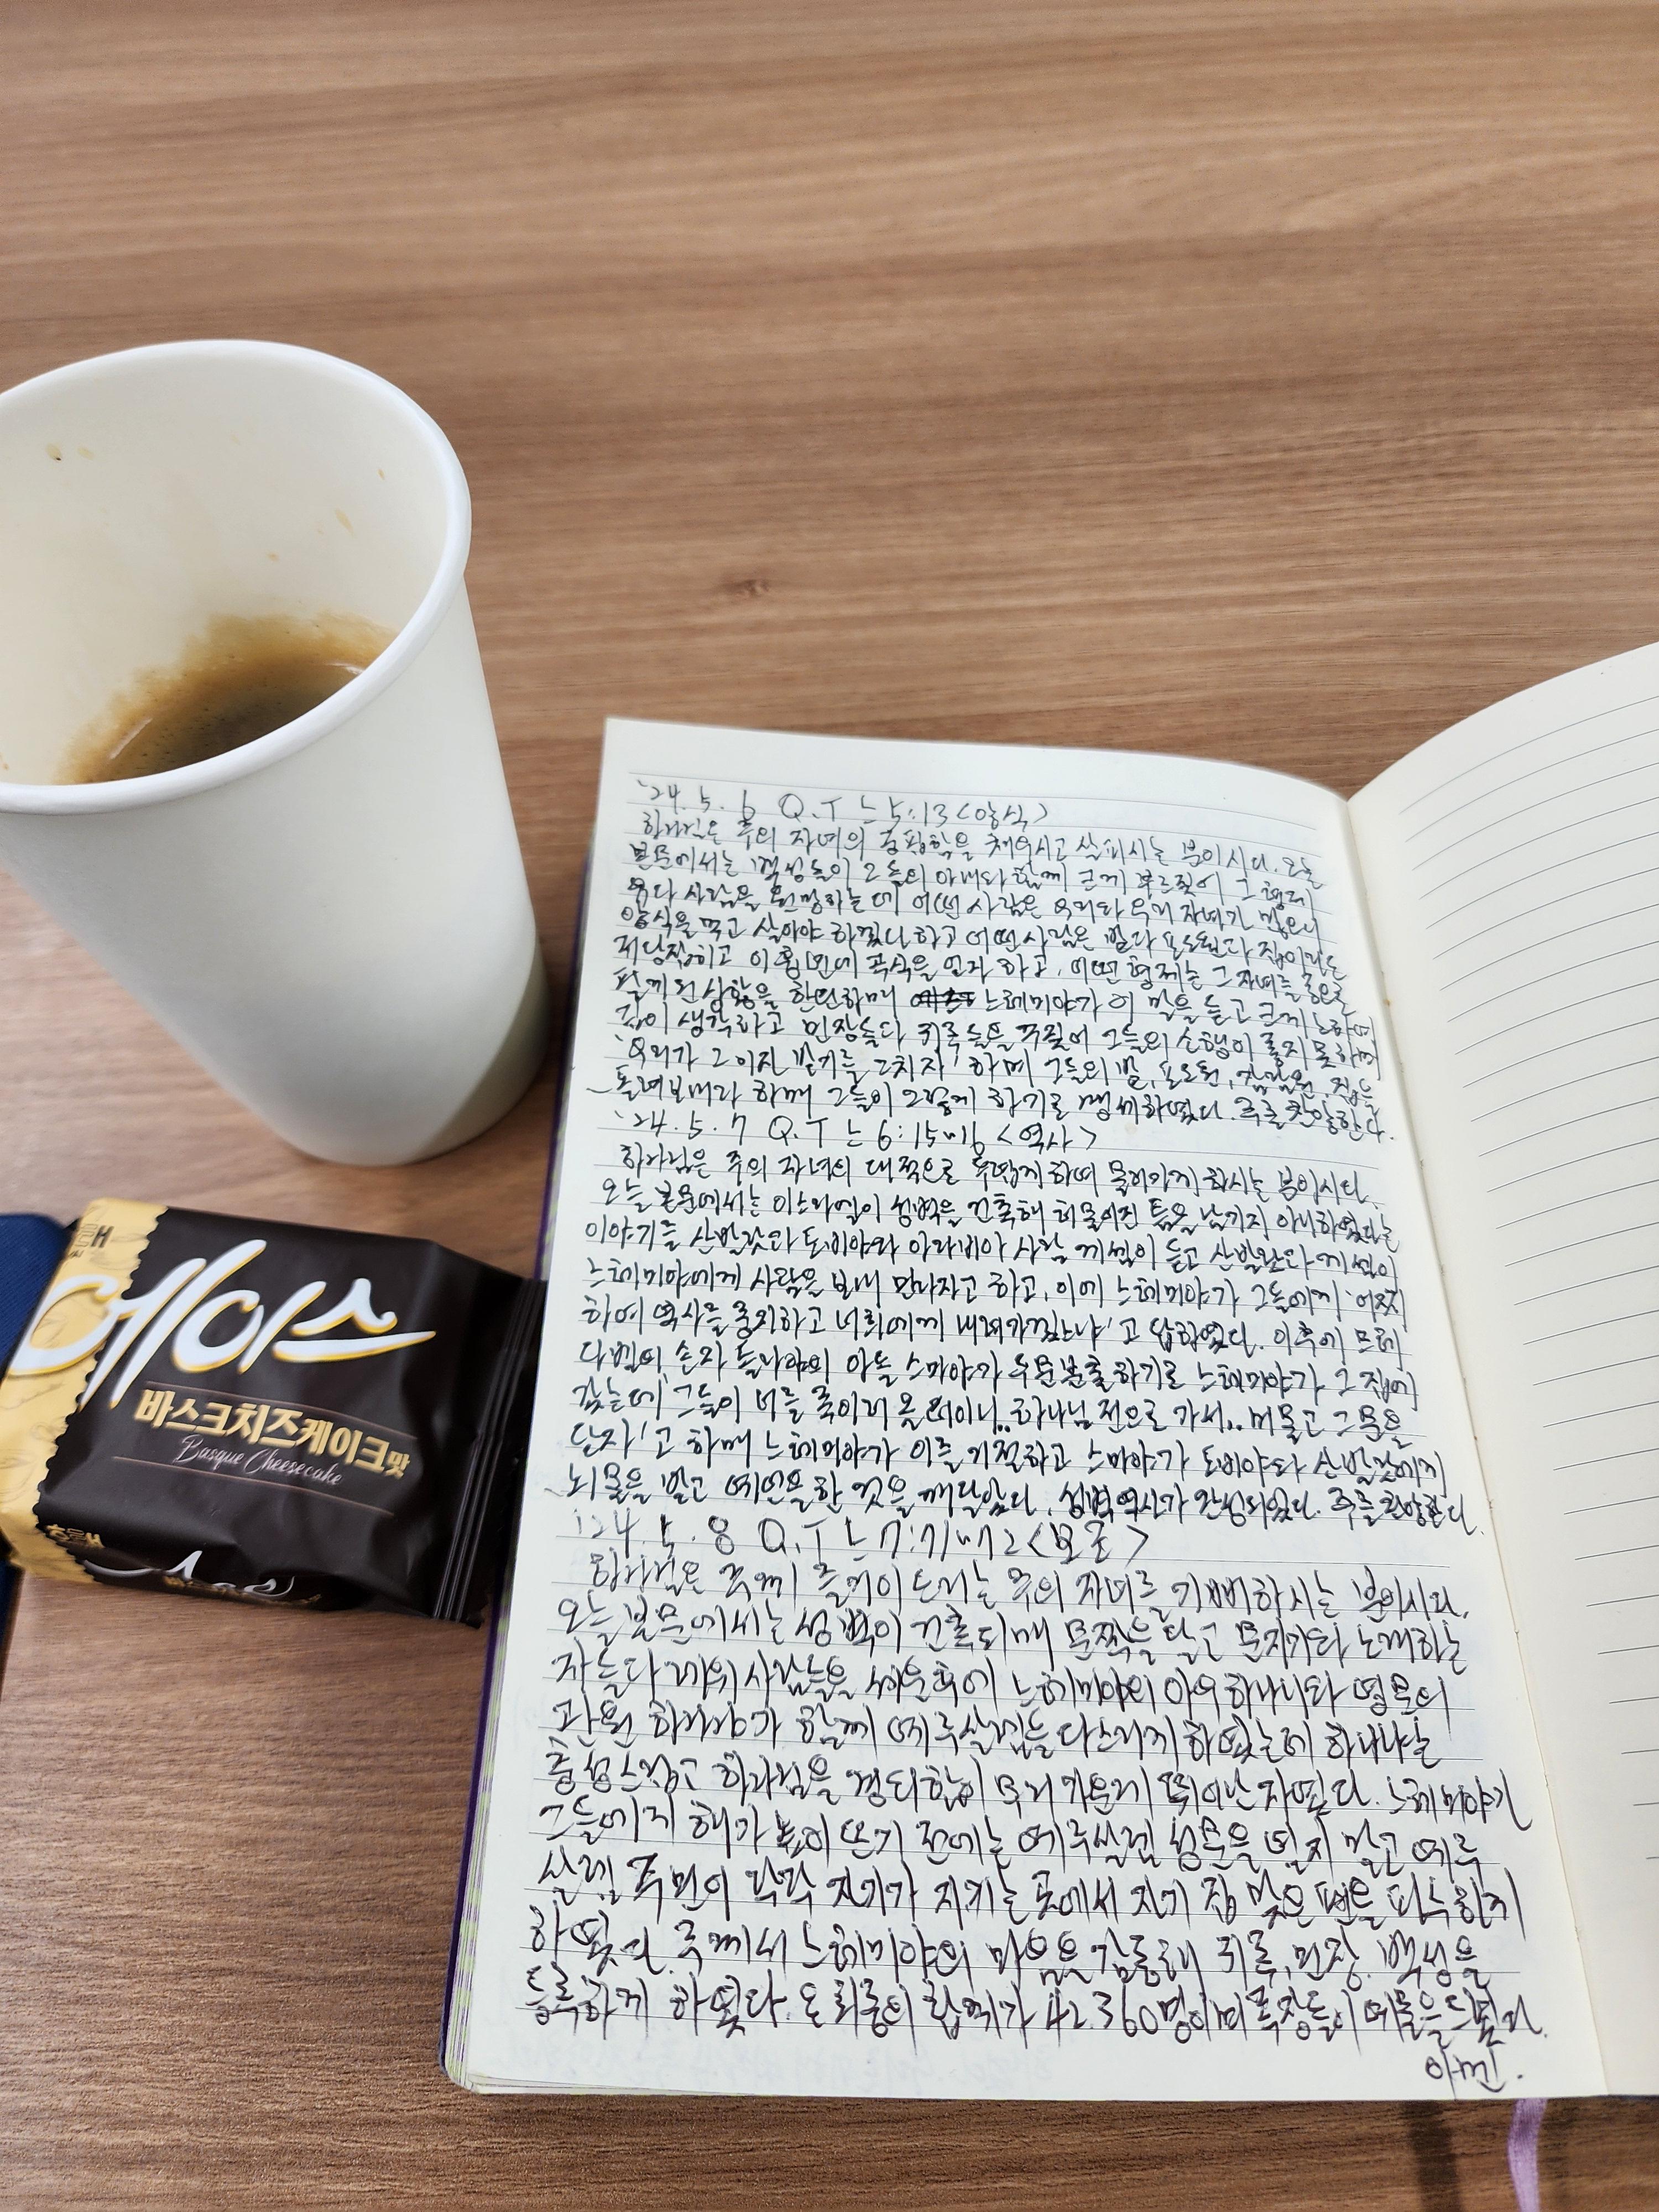 '24. 5. 6 Q.T 느 5:13 <양식>
하나님은 주의 자녀의 을 채우시고 살피시는 분이시다. 오늘
본문에서는 백성들이 그들의 아내와 함께 크게 부르짖어 그 형제
유다 사람을 원망하는데 어떤 사람은 우리와 우리 자녀가 많으니
양식을 먹고 살아야 하겠다 하고 어떤 사람은 밭과 포도원과 집이라도
저당잡히고 이 흉년에 곡식을 얻자 하고, 어떤 형제는 그 자녀를 종으로
팔게 된 상황을 한탄하매 느헤미야가 이 말을 듣고 크게 노하여
깊이 생각하고 민장들과 귀족들을 꾸짖어 그들의 소행이 좋지 못하며
'우리가 그 이자 받기를 그치자' 하며 그들의 밭, 포도원, 감람원, 집을
돌려보내라 하매 그들이 그렇게 하기로 맹세하였다. 주를 찬양한다.
'24. 5. 7 Q.T 느 6:15~16 <역사>
하나님은 주의 자녀의 대적으로 두렵게 하여 물러가게 하시는 분이시다.
오늘 본문에서는 이스라엘이 성벽을 건축해 허물어진 틈을 남기지 아니하였다는
이야기를 산발랏과 도비야와 아라비아 사람 게셈이 듣고 산발랏과 게셈이
느헤미야에게 사람을 보내 만나자고 하고, 이에 느헤미야가 그들에게 '어찌
하여 역사를 중지하고 너희에게 내려가겠느냐'고 답하였다. 이후에 므헤
다벨의 손자 들라야의 아들 스마야가 두문불출하기로 느헤미야가 그 집에
갔는데 '그들이 너를 죽이러 올 터이니.. 하나님 전으로 가서.. 머물고 그 문을
닫자'고 하매 느헤미야가 이를 거절하고 스마야가 도비야와 산발랏에게
뇌물을 받고 예언을 한 것을 깨달았다. 성벽 역사가 완성되었다. 주를 찬양한다.
'24. 5. 8 Q.T 느 7:71~72 <보물>
하나님은 주께 즐거이 드리는 주의 자녀를 기뻐하시는 분이시다.
오늘 본문에서는 성벽이 건축되매 문짝을 달고 문지기와 노래하는
자들과 레위 사람들을 세운 후에 느헤미야의 아우 하나니와 영문의
관원 하나냐가 함께 예루살렘을 다스리게 하였는데 하나냐는
충성스럽고 하나님을 경외함이 무리 가운데 뛰어난 자였다. 느헤미야가
그들에게 해가 높이 뜨기 전에는 예루살렘 성문을 열지 말고 예루
살렘 주민이 각각 자기가 지키는 곳에서 자기 집 맞은 편을 파수하게
하였다. 주께서 느헤미야의 마음을 감동해 귀족, 민장, 백성을
등록하게 하였다. 온 회중의 합계가 42.360명이며 족장들이 예물을 드렸다.
아멘.
에이스
바스크치즈케이크맛
Basque Cheesecake